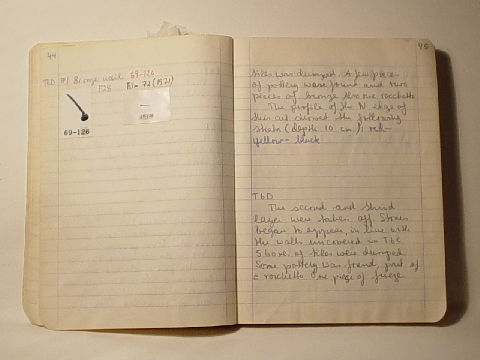 44
TbD №1 Bronze nail 69-126
F28 Bi= 72 (Pl 21)
69-126
45
tiles was dumped. A few pieces
of pottery were found and two
pieces of bronze also one rocchetto
The profile of the N edge of
this cut showed the following
strata (depth 10 cm.): red-
yellow- black
TbD
The second and third
layer were taken off. Stones
began to appear, in line with
the walls uncovered in TbC
5 boxes of tiles were dumped
Some pottery was found, part of
a rocchetto one piece of frieze